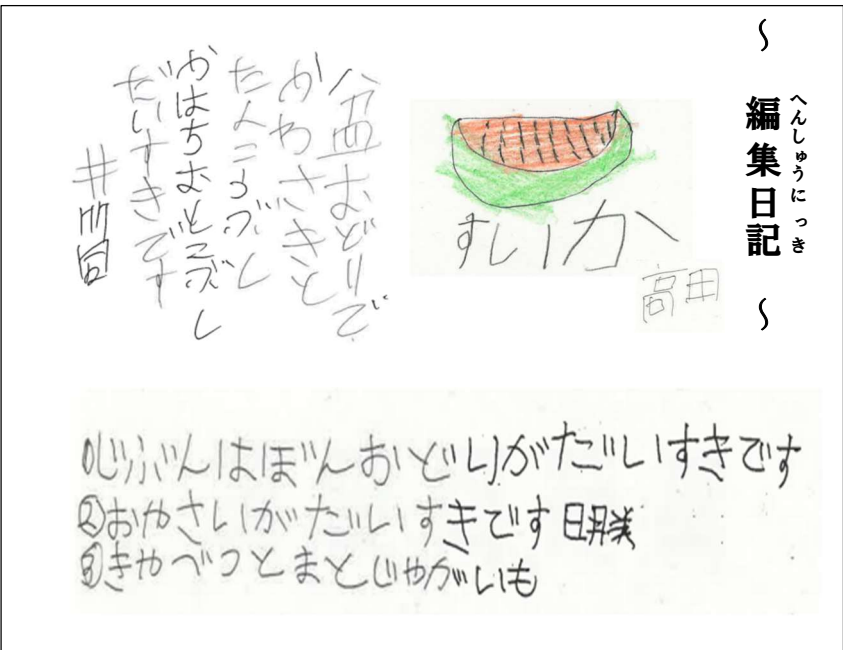 ～ 編集日記 ～
へんしゅうにっき
すいか
高田
盆おどりで
かわさきと
たんこうぶし
かはちおとこぶし
だいすきです
①じぶんはぼんおどりがだいすきです
②おやさいがだいすきです
③きやべつとまとじやがいも